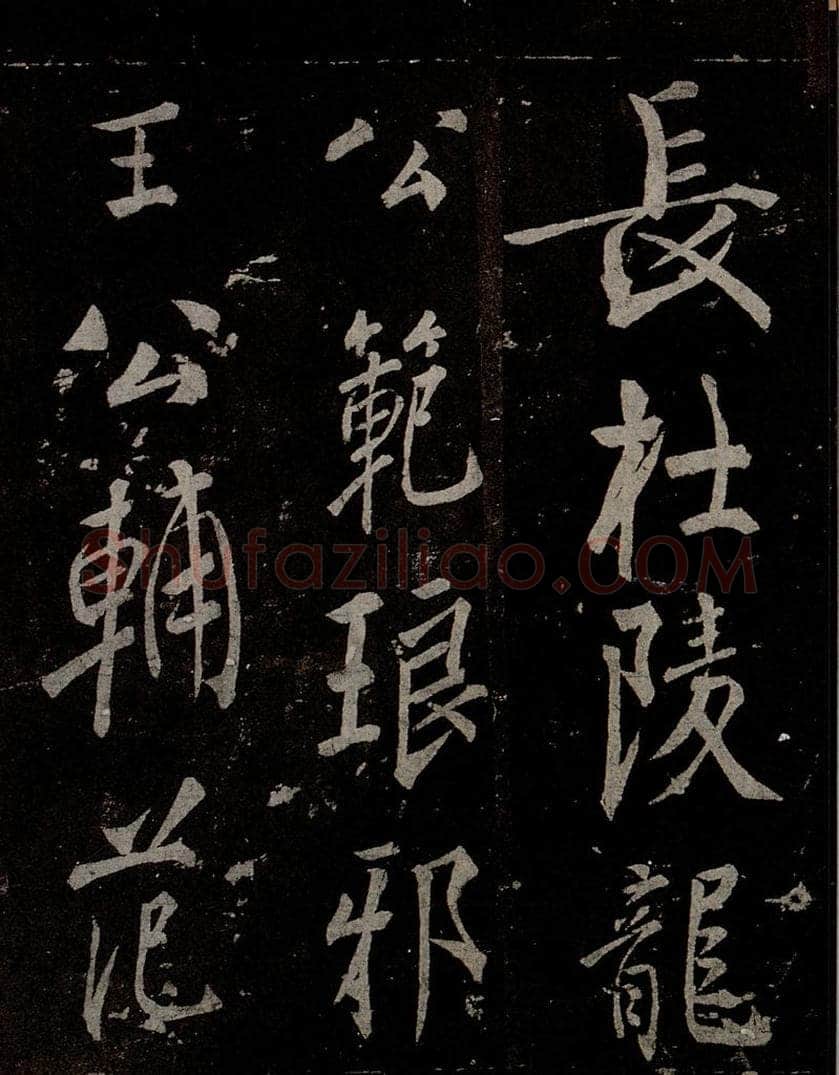 長杜陵龍
公範琅邪
王公輔范
Shufaziliao.COM